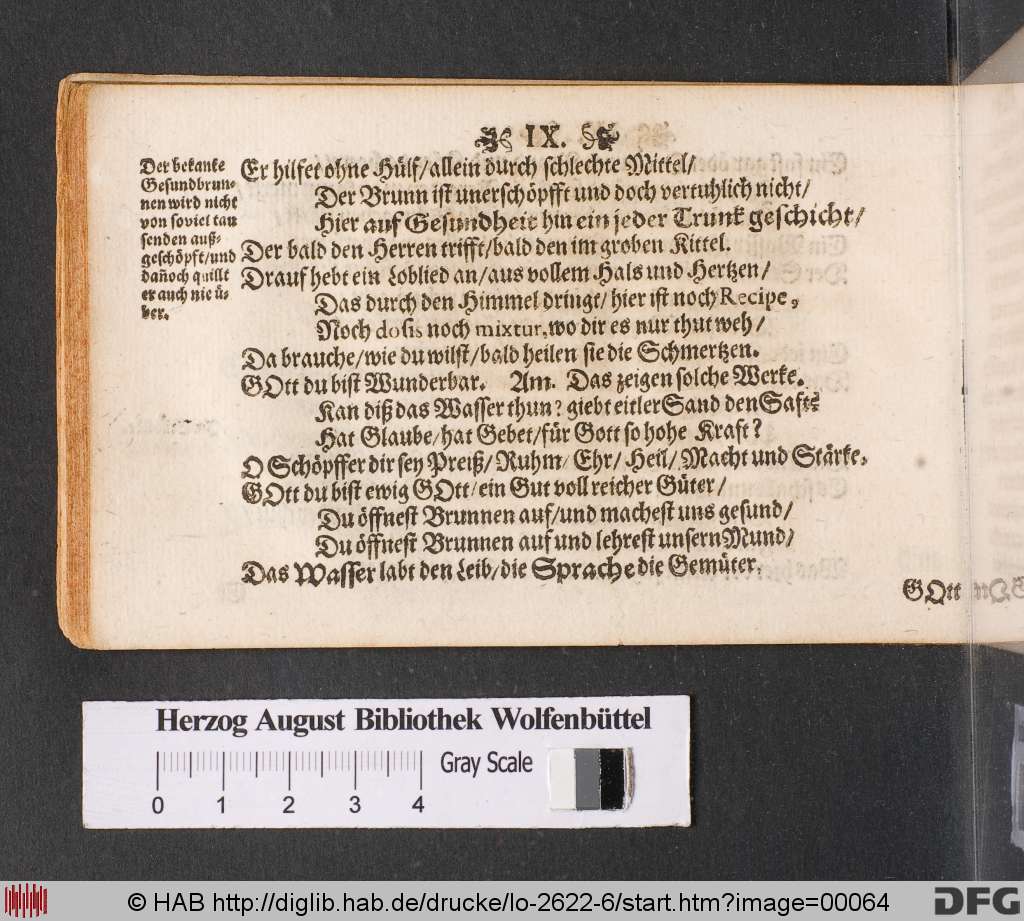 IX.
Der bekante
Gesundbrun-
nen wird nicht
von soviel tau
senden auß-
geschöpft/und
dañoch quillt
er auch nie ü-
ber.
Er hilfet ohne Hülf/allein durch schlechte Mittel/
Der Brunn ist unerschöpfft und doch vertuhlich nicht/
Hier auf Gesundheit hin ein jeder Trunk geschicht/
Der bald den Herren trifft/bald den im groben Kittel.
Drauf hebt ein Loblied an/aus vollem Hals und Hertzen/
Das durch den Himmel dringt/hier ist noch Recipe,
Noch dosis noch mixtur, wo dir es nur thut weh/
Da brauche/wie du wilst/bald heilen sie die Schmertzen.
GOtt du bist Wunderbar. Am. Das zeigen solche Werke.
Kan diß das Wasser thun? giebt eitler Sand den Saft?
Hat Glaube/hat Gebet/für Gott so hohe Kraft?
O Schöpffer dir sey Preiß/Ruhm/Ehr/Heil/Macht und Stärke.
GOtt du bist ewig GOtt/ein Gut voll reicher Güter/
Du öffnest Brunnen auf/und machest uns gesund/
Du öffnest Brunnen auf und lehrest unsern Mund/
Das Wasser labt den Leib/die Sprache die Gemüter.
GOtt
Herzog August Bibliothek Wolfenbüttel
Gray Scale
0 1 2 3 4
© HAB http://diglib.hab.de/drucke/lo-2622-6/start.htm?image=00064
DFG